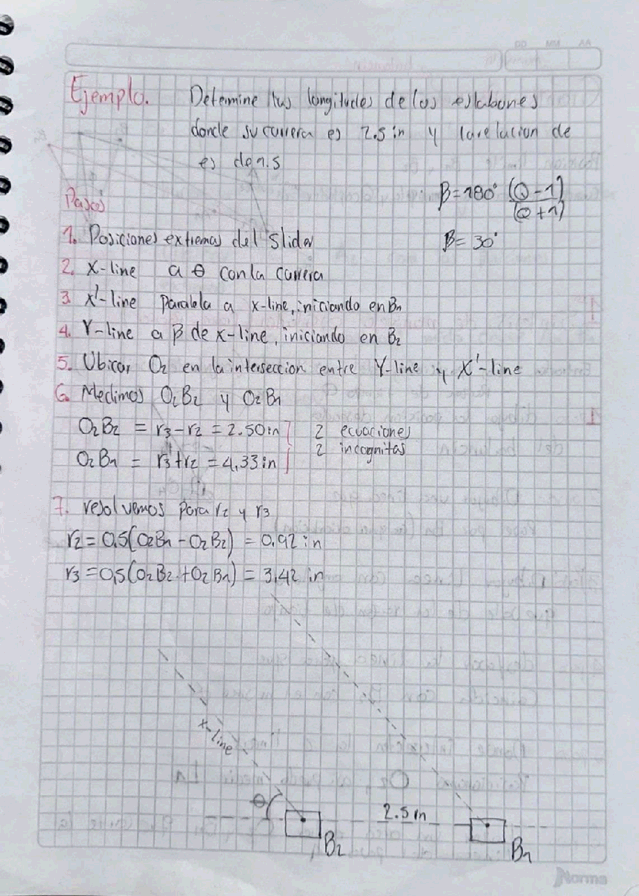 Ejemplo. Determine las longitudes de los eslabones
donde su carrera es 2.5 in y la relacion de
es de 1.5
β = 180° (Q - 1)
(Q + 1)
Pasos
β = 30°
1. Posiciones extremas del Slider
2. X-line a θ con la carrera
3 X'-line Paralela a x-line, iniciando en B1
4. Y-line a β de x-line, iniciando en B2
5. Ubicar O2 en la interseccion entre Y-line y X'-line
6. Medimos O2B2 y O2B1
O2B2 = r3 - r2 = 2.50 in 2 ecuaciones
2 incognitas
O2B1 = r3 + r2 = 4.33 in
7. resolvemos para r2 y r3
r2 = 0,5(O2B1 - O2B2) = 0.92 in
r3 = 0,5(O2B2 + O2B1) = 3.42 in
x-line
θ
2.5 in
B2
B1
Norma